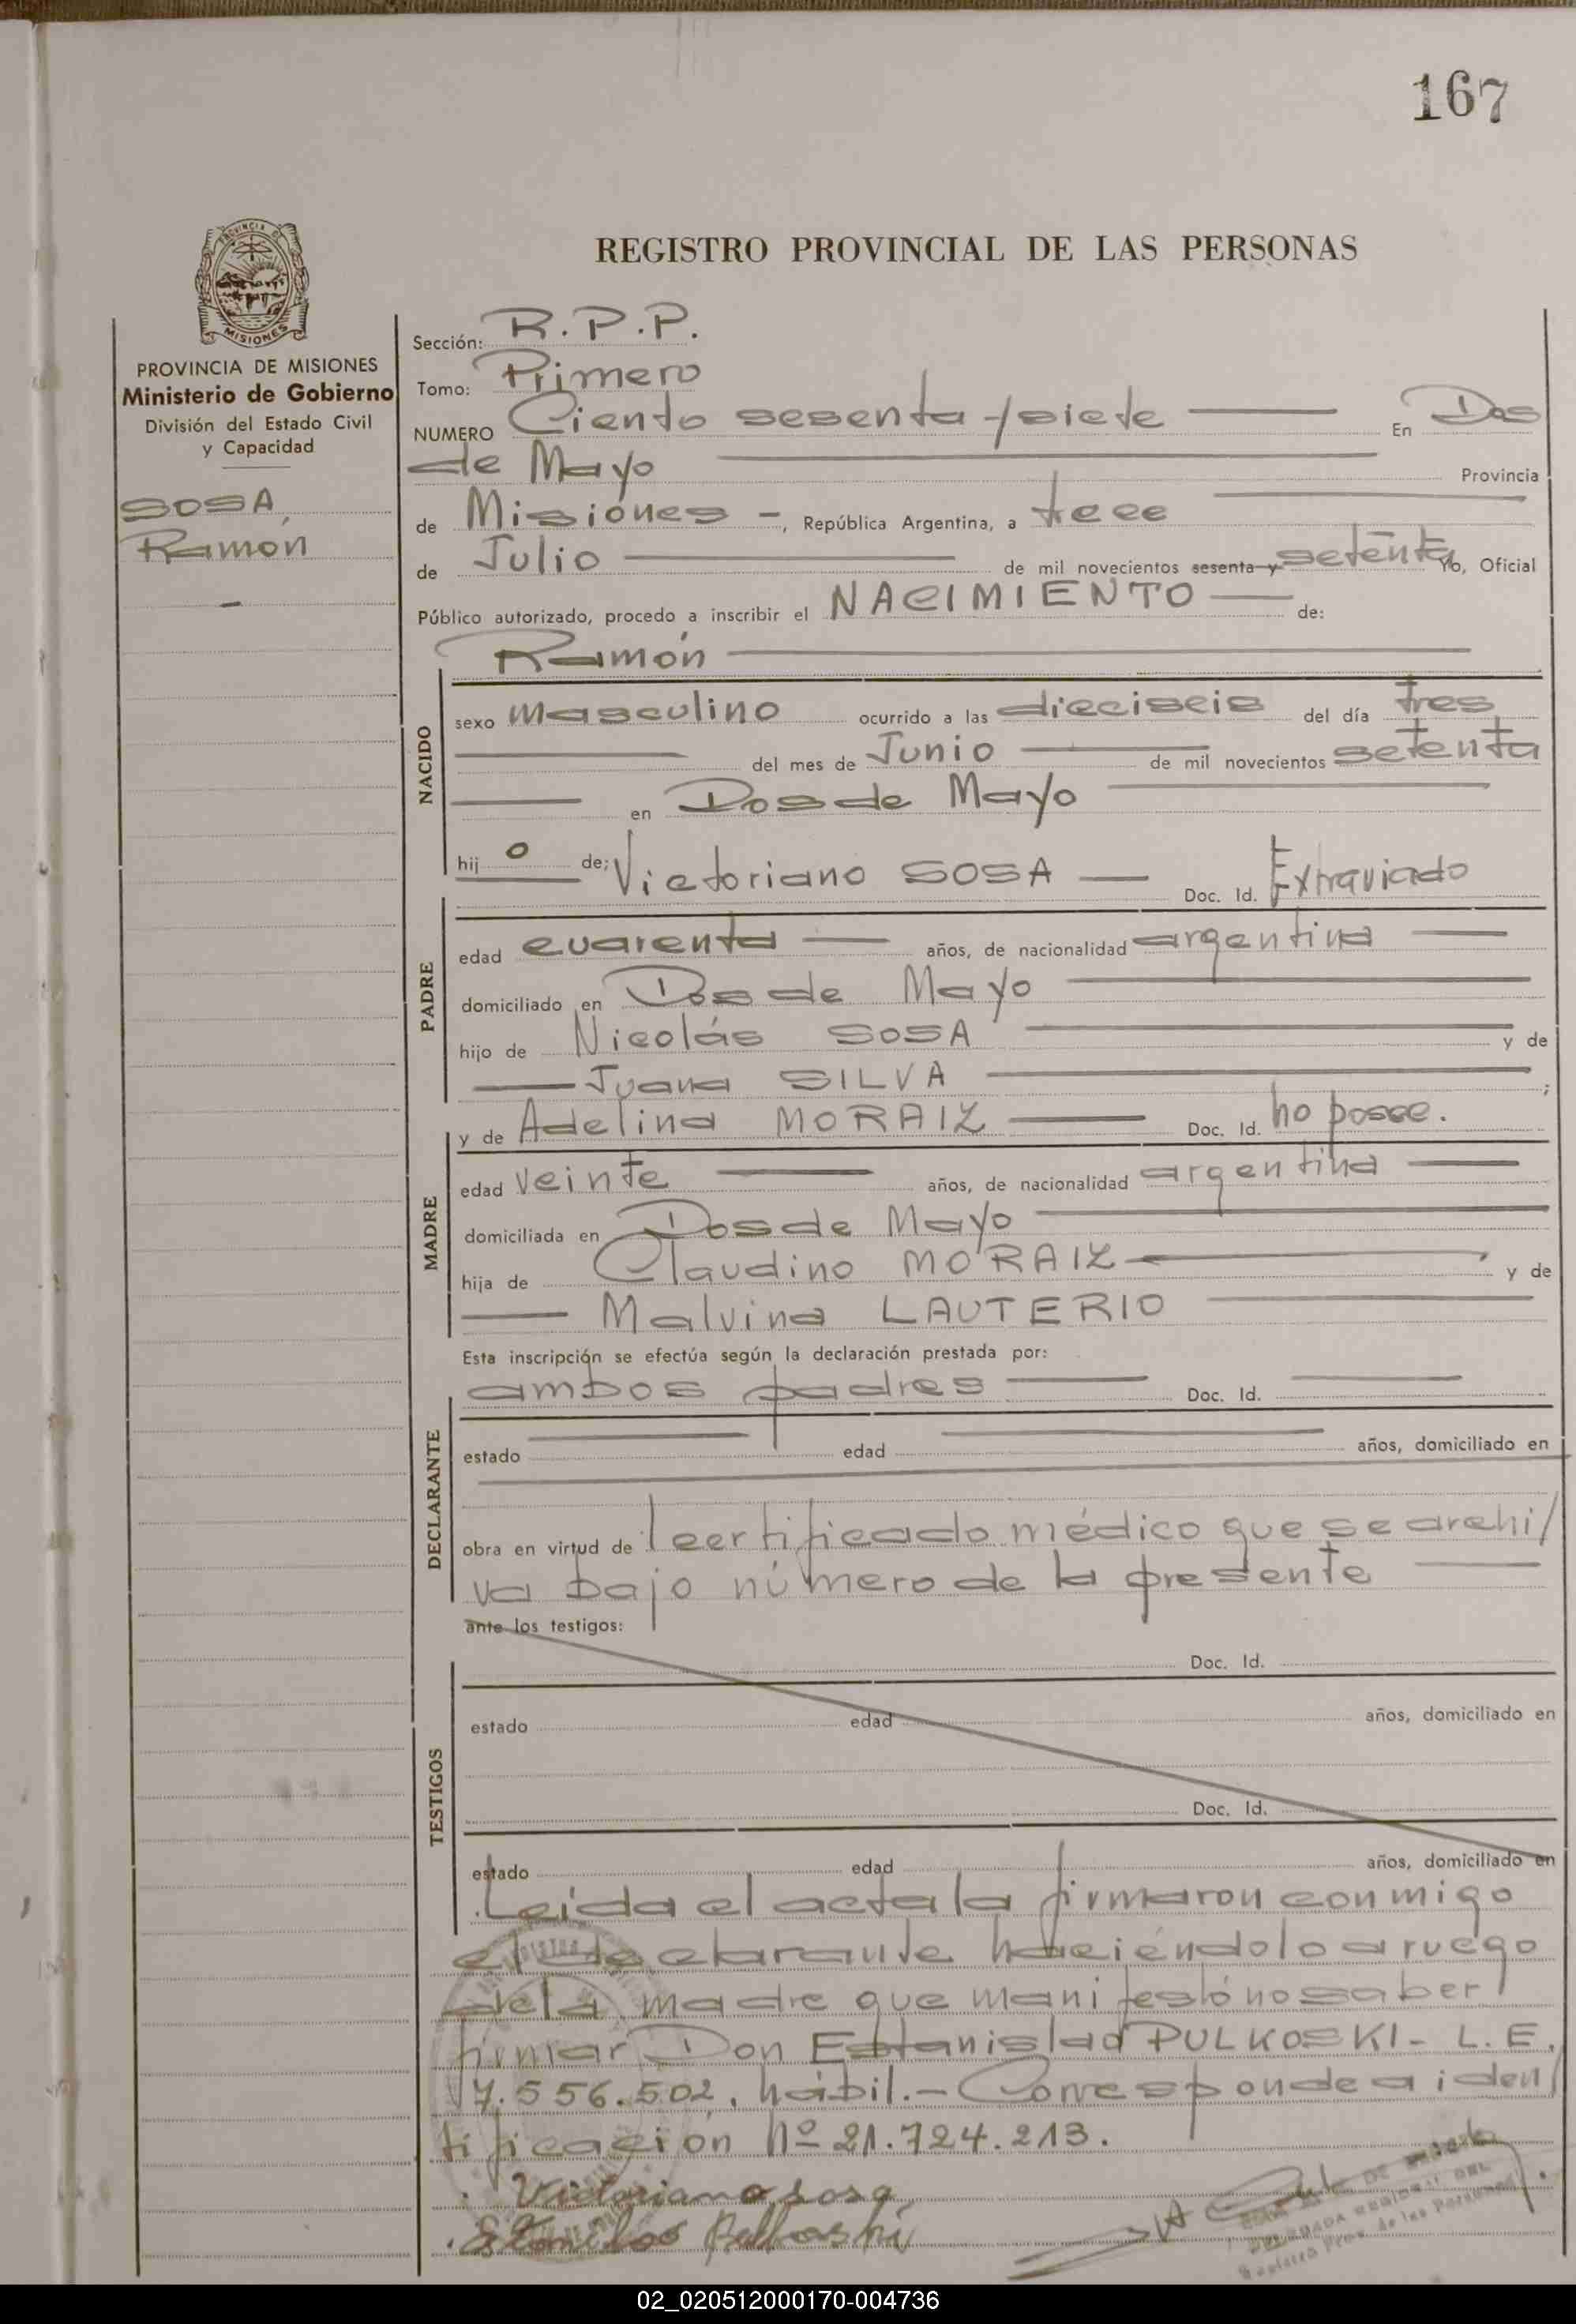 167
REGISTRO PROVINCIAL DE LAS PERSONAS
PROVINCIA DE MISIONES
Ministerio de Gobierno
División del Estado Civil
y Capacidad
SOSA,
Ramón
Sección: R.P.P.
Tomo: Primero
NUMERO Ciento sesenta y siete En Dos
de Mayo Provincia
de Misiones -, República Argentina, a trece
de Julio de mil novecientos sesenta y setenta Yo, Oficial
Público autorizado, procedo a inscribir el NACIMIENTO de:
Ramón
NACIDO
sexo masculino ocurrido a las dieciseis del día tres
del mes de Junio de mil novecientos setenta
en Dos de Mayo
hijo de; Victoriano SOSA Doc. Id. Extraviado
PADRE
edad cuarenta años, de nacionalidad argentina
domiciliado en Dos de Mayo
hijo de Nicolás SOSA y de
Juana SILVA ;
y de Adelina MORAIZ Doc. Id. no posee.
MADRE
edad veinte años, de nacionalidad argentina
domiciliada en Dos de Mayo
hija de Claudino MORAIZ y de
Malvina LAUTERIO
Esta inscripción se efectúa según la declaración prestada por:
ambos padres Doc. Id.
DECLARANTE
estado edad años, domiciliado en
obra en virtud de certificado médico que se archi/
va bajo número de la presente
ante los testigos:
TESTIGOS
Doc. Id.
estado edad años, domiciliado en
Doc. Id.
estado edad años, domiciliado en
Leida el acta la firmaron conmigo
el declarante haciéndolo a ruego
de la madre que manifestó no saber
firmar Don Estanislad PULKOSKI - L.E.
7.556.502, hábil.- Corresponde a iden/
tificación Nº 21.724.213.
Victoriano Sosa
02_020512000170-004736